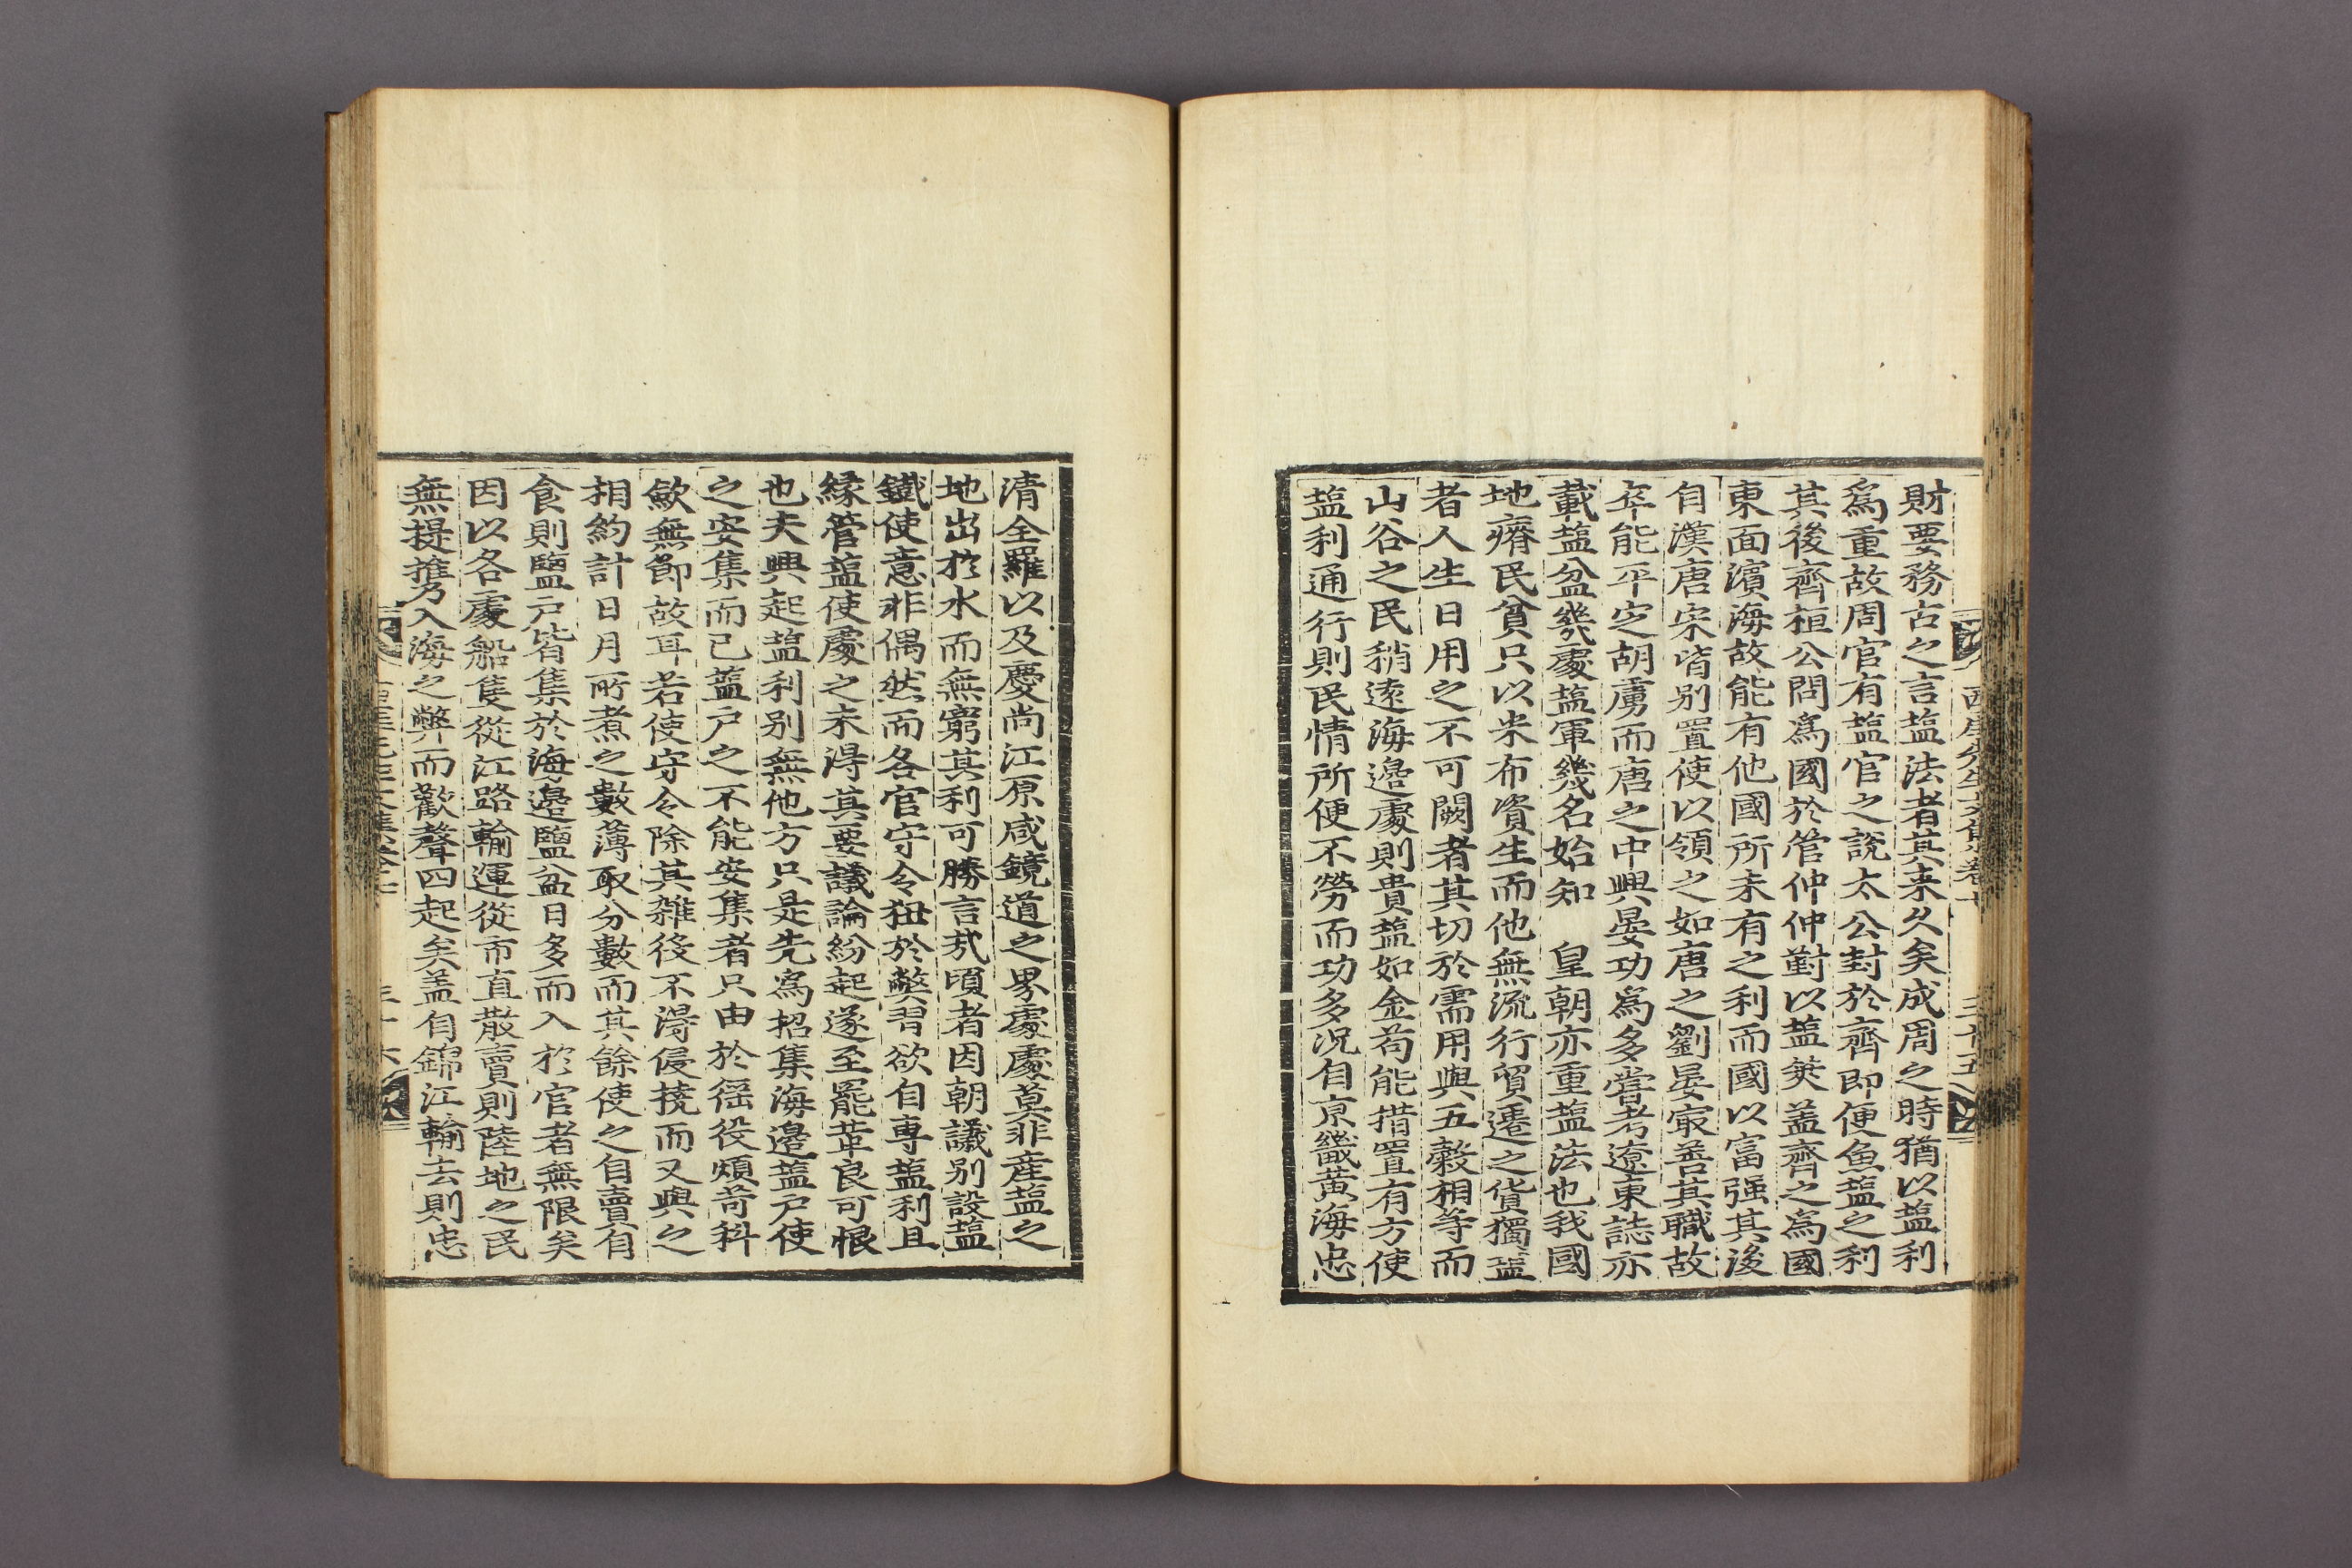 財要務古之言塩法者其来久矣成周之時猶以塩利
爲重故周官有塩官之說太公封於齊即便魚塩之利
其後齊桓公問爲國於管仲仲對以塩筴盖齊之爲國
東面濱海故能有他國所未有之利而國以富强其後
自漢唐宋皆别置使以領之如唐之劉晏㝡善其職故
卒能平定胡虜而唐之中興晏功爲多嘗考遼東誌亦
載塩盆幾處塩軍幾名始知 皇朝亦重塩法也我國
地瘠民貧只以米布資生而他無流行貿遷之貨獨塩
者人生日用之不可闕者其切於需用與五糓相等而
山谷之民稍遠海邊處則貴塩如金苟能措置有方使
塩利通行則民情所便不勞而功多况自京畿黃海忠
西厓先生文集卷七 三十五
清全羅以及慶尚江原咸鏡道之界處處莫非産塩之
地出於水而無窮其利可勝言㦲頃者因朝議别設塩
鐵使意非偶然而各官守令狃於獘習欲自專塩利且
緣管塩使處之未得其要議論紛起遂至罷革良可恨
也夫興起塩利别無他方只是先爲招集海邊塩戶使
之安集而已塩戶之不能安集者只由於徭役煩苛科
歛無節故耳若使守令除其雜役不得侵撓而又與之
相約計日月所煮之數薄取分數而其餘使之自賣自
食則鹽戶皆集於海邊鹽盆日多而入於官者無限矣
因以各處船隻從江路輸運從市直散賣則陸地之民
無提携入海之弊而歡聲四起矣盖自錦江輸去則忠